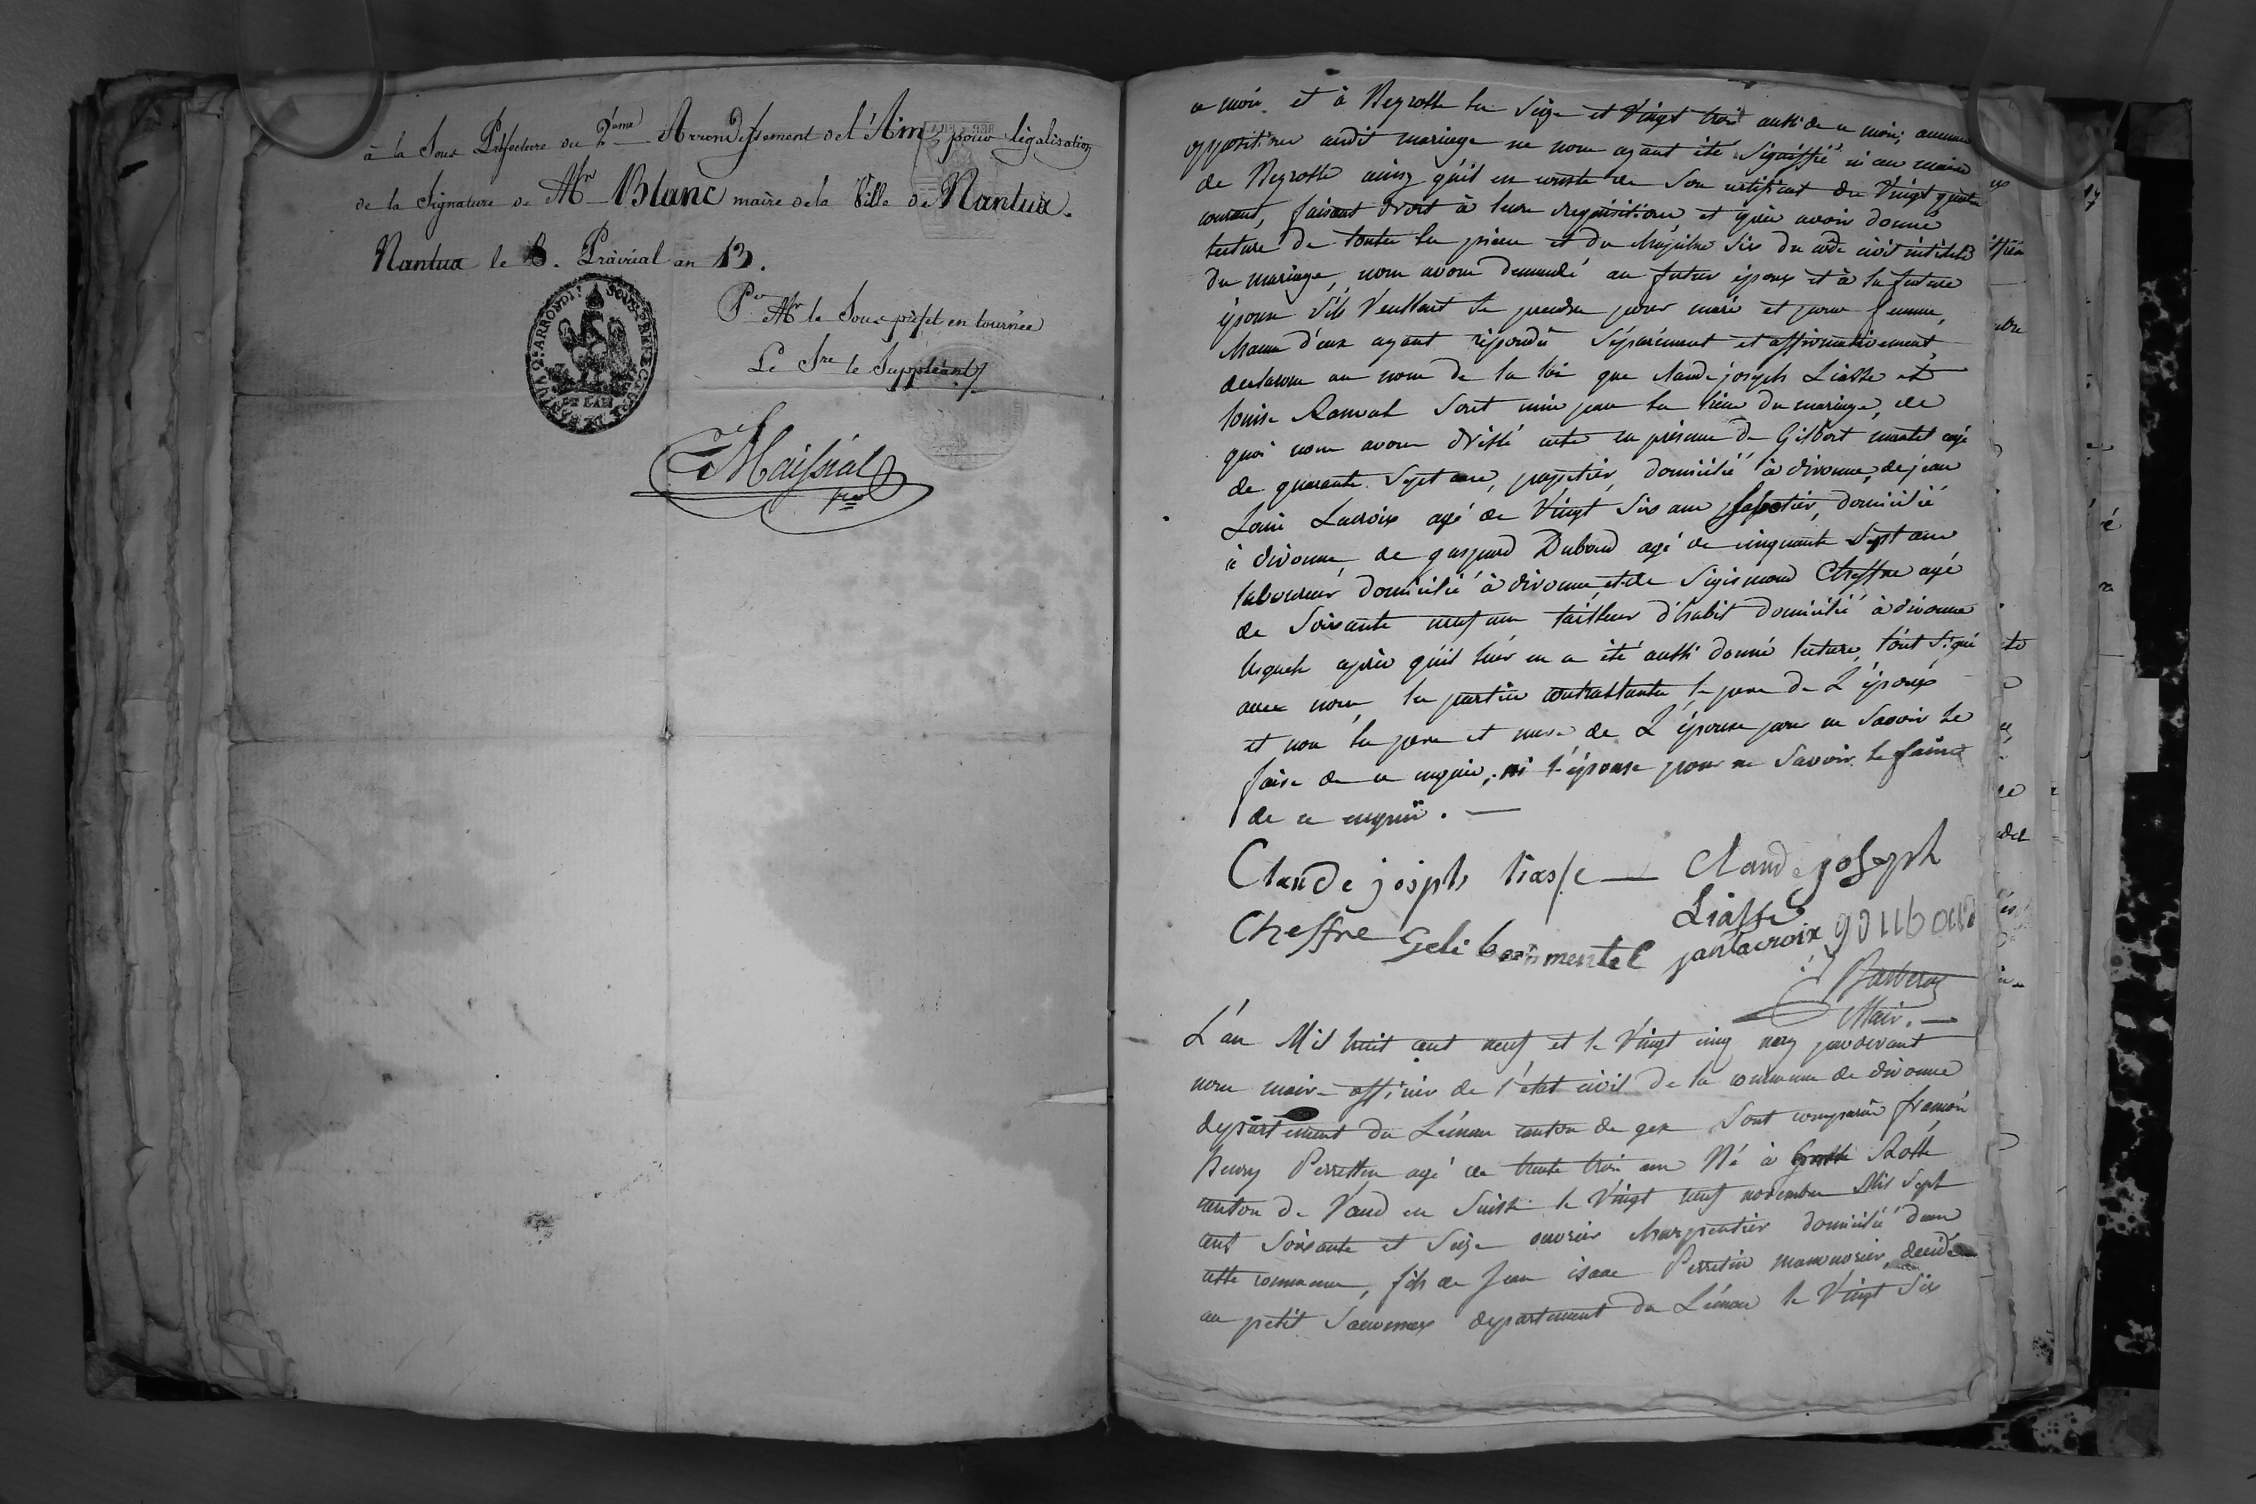 à la Sous Préfecture du 2eme Arrondissement de l'Ain pour légalisation
de la Signature de Mr Blanc maire de la Ville de Nantua.
Nantua le 8. Prairial an 13.
Pr Mr le Sous préfet en tournée
Le Sre le Suppléant
Maissiat
SOUS PREFECTURE DE NANTUA
DE L'AIN
ce mois et à Neyrolle les Seize et Vingt trois aussi de ce mois, aucune
opposition audit mariage ne nous ayant été Signiffié ni au maire
de Neyrolle ainsy qu'il en conste de Son certificat du Vingt quatre
courant, faisant droit à leurs requisitions et après avoir donné
lecture de toutes les pièces et du chapitre Six du code civil intitulé
du mariage, nous avons demandé au futur époux et à la future
épouse S'ils Veullent Se prendre pour mari et pour femme,
chacun d'eux ayant répondû Séparément et affirmativement,
declarons au nom de la loi que claude joseph Liasse et
louise Ramat Sont unis par les liens du mariage, de
quoi nous avons dréssé acte en présence de Gilbert mantel agé
de quarante Sept ans, papetier, domicilié à divonne, de jean
Louis Lacroix agé de Vingt Six ans papetier, domicilié
à divonne, de gaspard Duboud agé de cinquante Sept ans
laboureur domicilié à divonne, et de Sigismond Cheffre agé
de Soixante neuf ans tailleur d'habit domicilié à divonne
lesquels après qu'il leur en a été aussi donné lecture, l'ont Signé
avec nous, les parties contractantes, le pere de L'époux
et non les pere et mere de L'épouse pour ne Savoir le
faire de ce enquis, ni l'épouse pour ne Savoir le faire
de ce enquis. —
Claude joseph liasse — Claude joseph
Liasse
Cheffre Gelibert mentel jan lacroix g duboud
Barberat
Maire. —
L'an Mil huit cent neuf et le Vingt cinq may pardevant
nous maire officier de l'état civil de la commune de divonne
departement du Léman canton de gex Sont comparus françois
henry Perrettin agé de trente trois ans Né à Rolle
canton de Vaud en Suisse le Vingt neuf novembre Mil Sept
cent Soixante et Seize ouvrier charpentier domicilié dans
cette commune, fils de Jean isaac Perretin manouvrier, decédé
au petit Sauvernex departement du Léman le Vingt Six